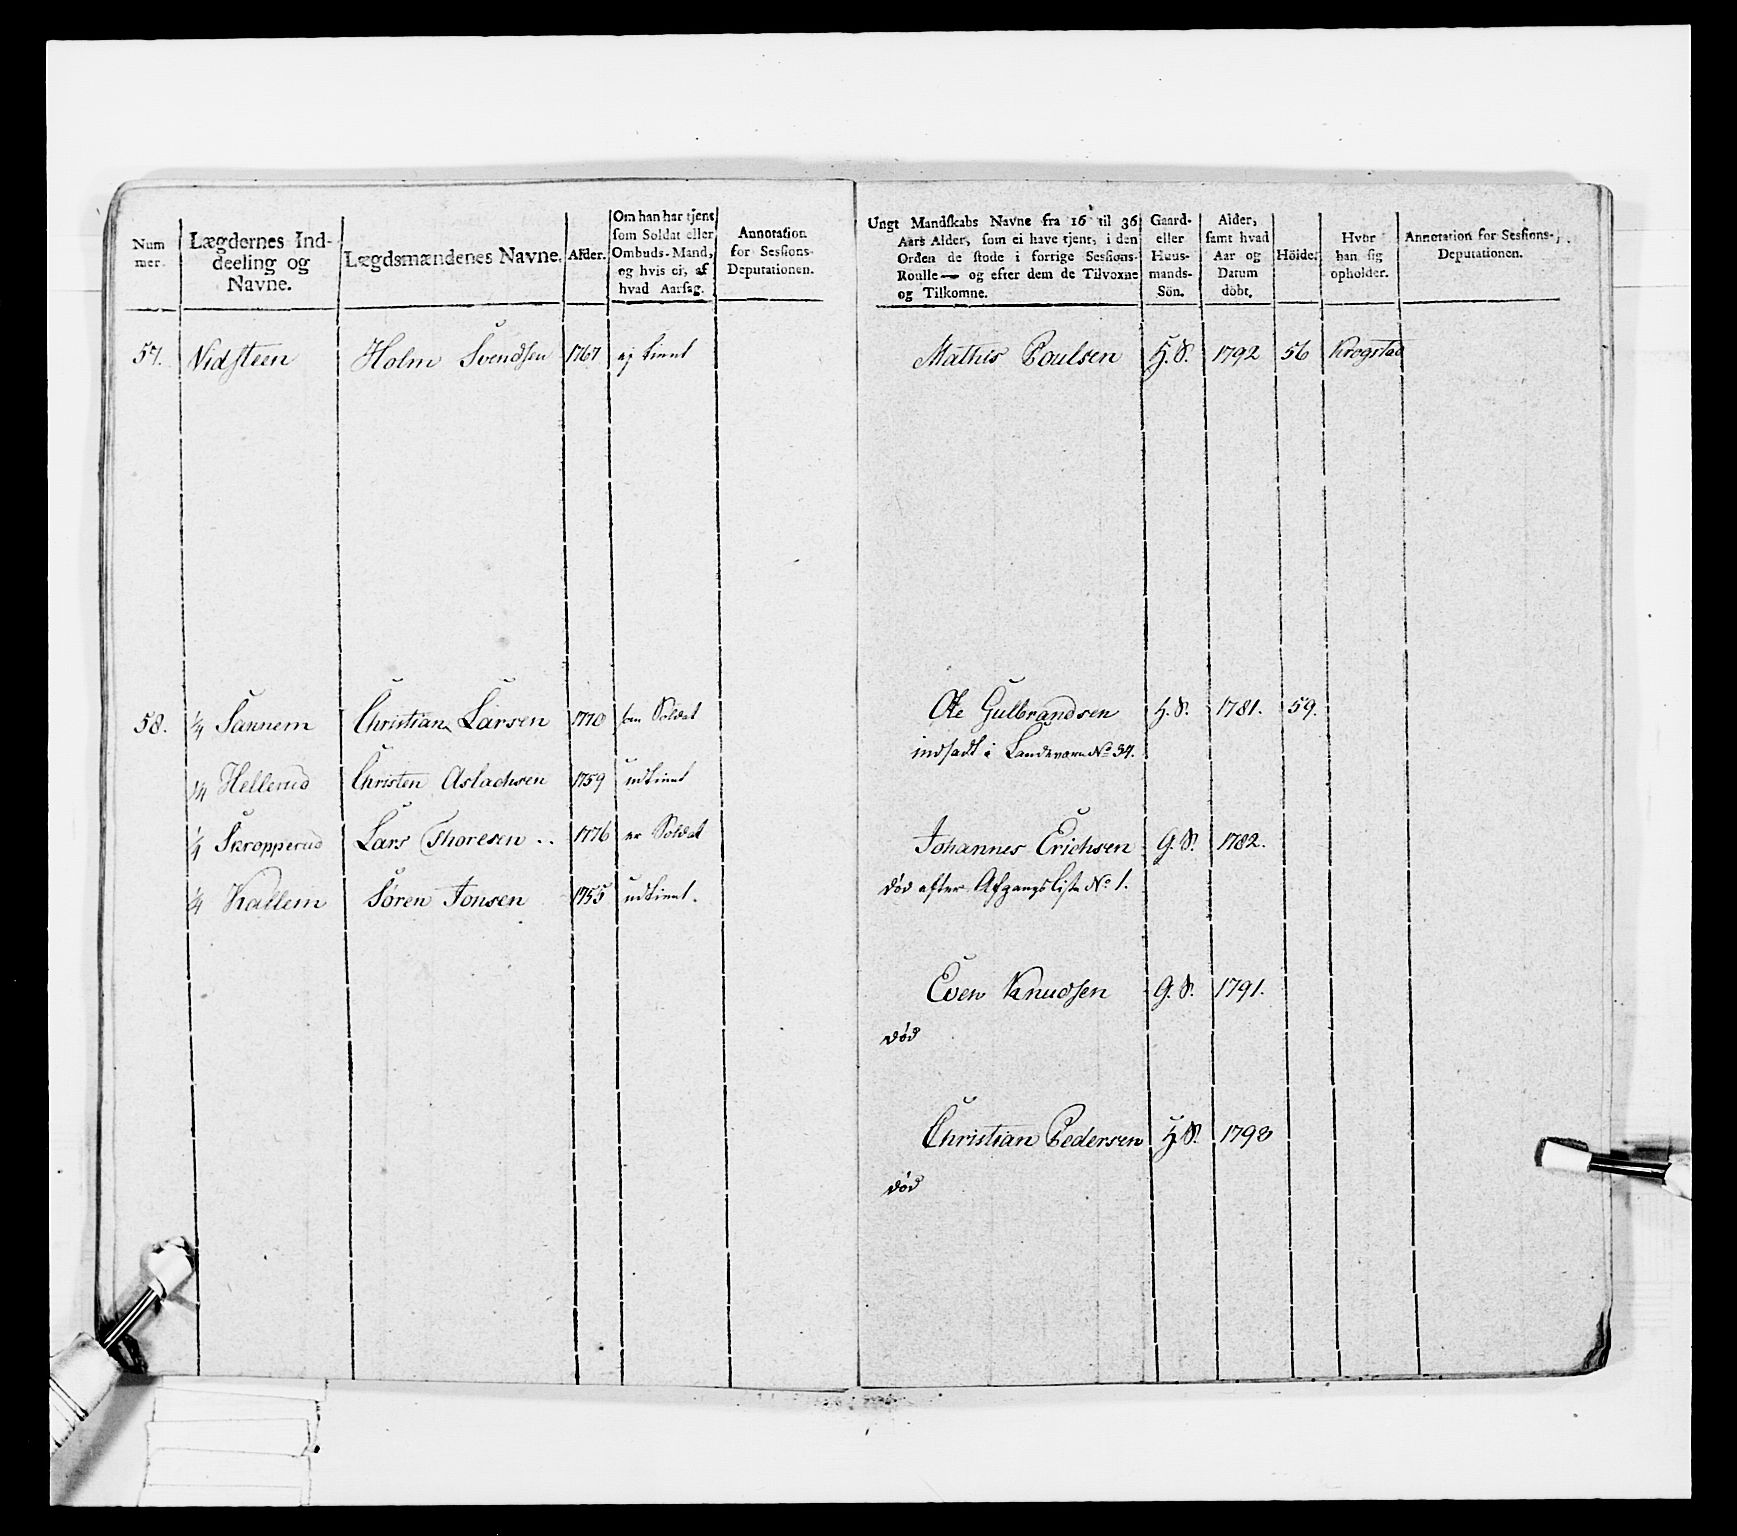 Num
mer.
Lægdernes Ind-
deeling og
Navne.
Lægdsmændenes Navne.
Alder.
Om han har tjent
som Soldat eller
Ombuds-Mand,
og hvis ei, af
hvad Aarsag.
Annotation
for Sessions-
Deputationen.
57. Vidsteen Holm Svendsen 1767 ej tient
58. 1/4 Sannem Christian Larsen 1770 Soldat
1/4 Hellerud Christen Aslachsen 1759 udtient
1/4 Skropperud Lars Thoresen .. 1776 er Soldat
1/4 Kallem Søren Jonsen 1755 udtient.
Ungt Mandskabs Navne fra 16 til 36
Aars Alder, som ei have tjent, i den
Orden de stode i forrige Sessions-
Roulle — og efter dem de Tilvoxne
og Tilkomne.
Gaard-
eller
Huus-
mands-
Sön.
Alder,
samt hvad
Aar og
Datum
döbt.
Höide.
Hvor
han sig
opholder.
Annotation for Sessions-
Deputationen.
Mathis Poulsen H.S. 1792 56 Krogstad
Ole Gulbrandsen H.S. 1781. 59.
indsadt i Landeværn No 34.
Johannes Erichsen G.S. 1782.
død efter Afgangsliste No 1.
Even Knudsen G.S. 1791.
død
Christian Pedersen H.S. 1793
død